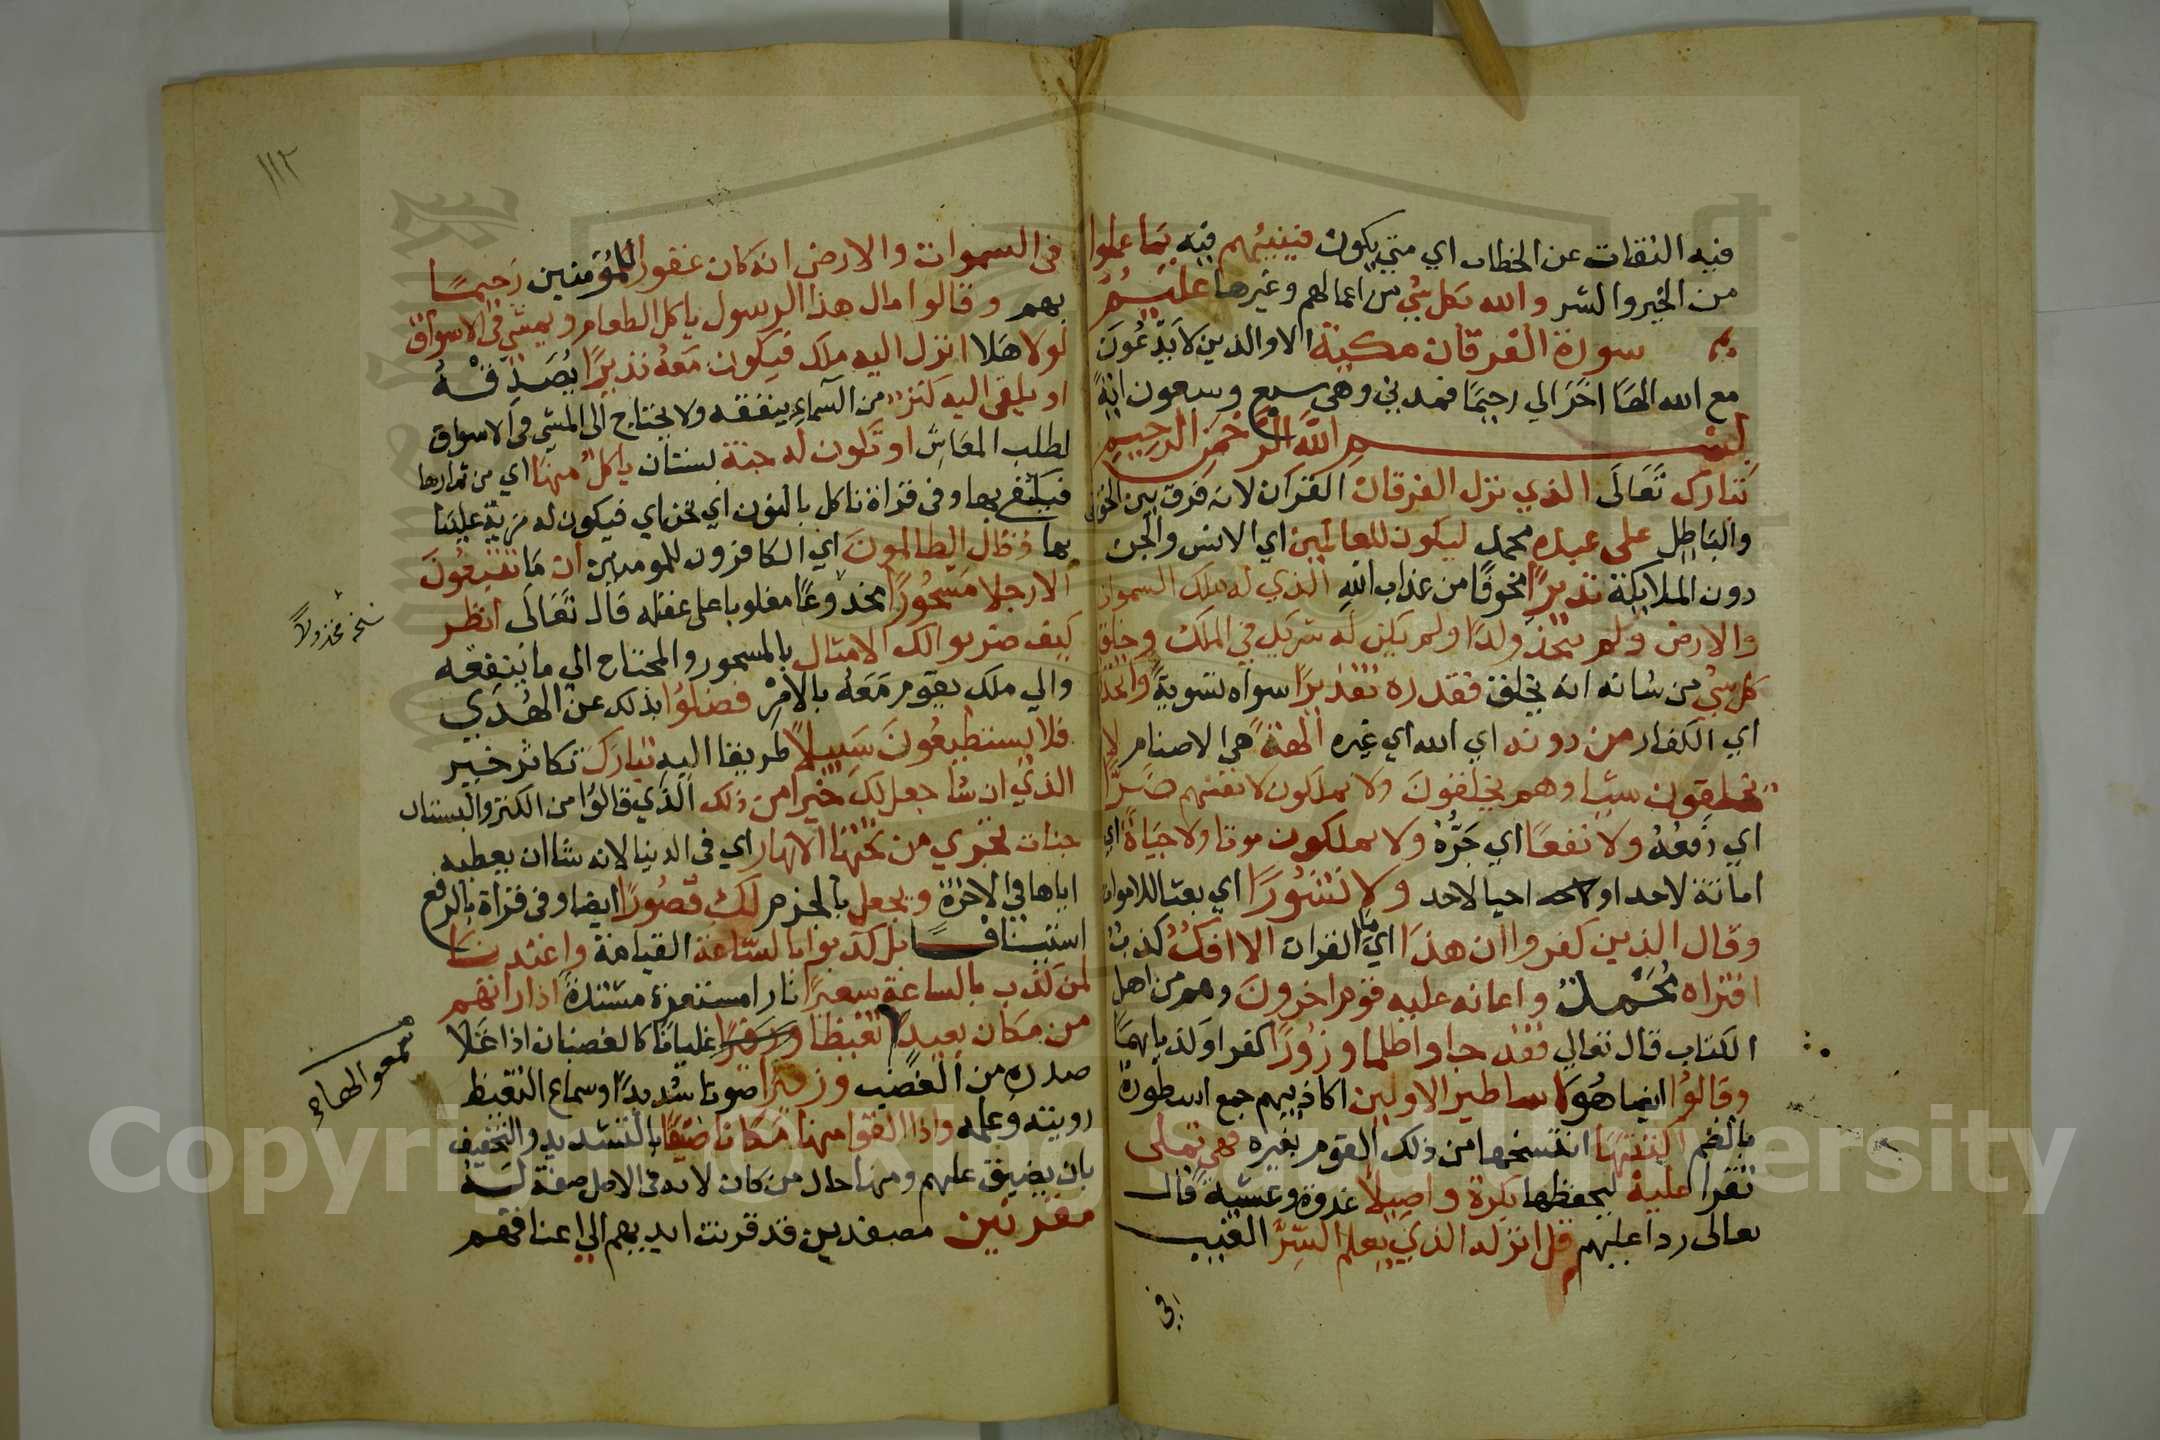 فيه التفات عن الخطاب اي متي يكون فينبيهم فيه بما عملوا
من الخير والشر والله بكل شي من اعمالهم وغيرها عليم
سورة الفرقان مكية الا والذين لا يدعون
مع الله الها اخر الي رحيما فمدني وهي سبع وسبعون اية
بسم الله الرحمن الرحيم
تبارك تعالى الذي نزل الفرقان القران لانه فرق بين الحق
والباطل على عبده محمد ليكون للعالمين اي الانس والجن
دون الملايكة نذيرا مخوفا من عذاب الله الذي له ملك السموات
والارض ولم يتخذ ولدا ولم يكن له شريك في الملك وخلق
كل شي من شانه انه يخلق فقدره تقديرا سواه تسوية واتخذوا
اي الكفار من دونه اي الله اي غيره الهة هي الاصنام لا
يخلقون شيا وهم يخلقون ولا يملكون لانفسهم ضرا
اي دفعه ولا نفعا اي جره ولا يملكون موتا ولا حياة اي
اماتة لاحد او احيا لاحد ولا نشورا اي بعثا للاموات
وقال الذين كفروا ان هذا اي ما القران الا افك كذب
افتراه محمد واعانه عليه قوم اخرون وهم من اهل
الكتاب قال تعالي فقد جاوا ظلما وزورا كفرا وكذبا بهما
وقالوا ايضا هو اساطير الاولين اكاذيبهم جمع اسطورة
بالضم اكتتبها انتسخها من ذلك القوم بغيره فهي تملى
تقرا عليه ليحفظها بكرة واصيلا غدوة وعشية قال
تعالى ردا عليهم قل انزله الذي يعلم السر الغيب
في
١١٢
في السموات والارض انه كان غفورا للمؤمنين رحيما
بهم وقالوا مال هذا الرسول ياكل الطعام ويمشي في الاسواق
لولا هلا انزل اليه ملك فيكون معه نذيرا يصدقه
او يلقى اليه كنز من السماء ينفقه ولا يحتاج الى المشي في الاسواق
لطلب المعاش او تكون له جنة بستان ياكل منها اي من ثمارها
فيكتفي بها وفي قراة ناكل بالنون اي نحن اي فيكون له مزية علينا
بها وقال الظالمون اي الكافرون للمومنين ان ما تتبعون
الا رجلا مسحورا مخدوعا مغلوبا على عقله قال تعالى انظر
كيف ضربوا لك الامثال بالمسحور والمحتاج الي ما ينفعه
والي ملك يقوم معه بالامر فضلوا بذلك عن الهدي
فلا يستطيعون سبيلا طريقا اليه تبارك تكاثر خير
الذي ان شا جعل لك خيرا من ذلك الذي قالوا من الكنز والبستان
جنات تجري من تحتها الانهار اي في الدنيا لانه شا ان يعطيه
اياها في الاخرة ويجعل بالجزم لك قصورا ايضا وفي قراة بالرفع
استينافا بل كذبوا بالساعة القيامة واعتدنا
لمن كذب بالساعة سعيرا نارا مستعرة مشتدة اذا راتهم
من مكان بعيد تغيظا غليانا كالغضبان اذا غلا
صدره من الغضب وزفيرا صوتا شديدا وسماع التغيظ
رويته وعلمه واذا القوا منها مكانا ضيقا بالتشديد والتخفيف
بان يضيق عليهم ومنها حال من مكان لانه في الاصل صفة له
مقرنين مصفدين قد قرنت ايديهم الي اعناقهم
نسخه مخذولا
سمعوا لها
Copyright © King Saud University